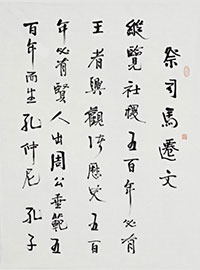 祭司馬遷文
縱覽社稷五百年必有
王者興觀諸歷史五百
年必有賢人出周公垂範五
百年而生孔仲尼孔子